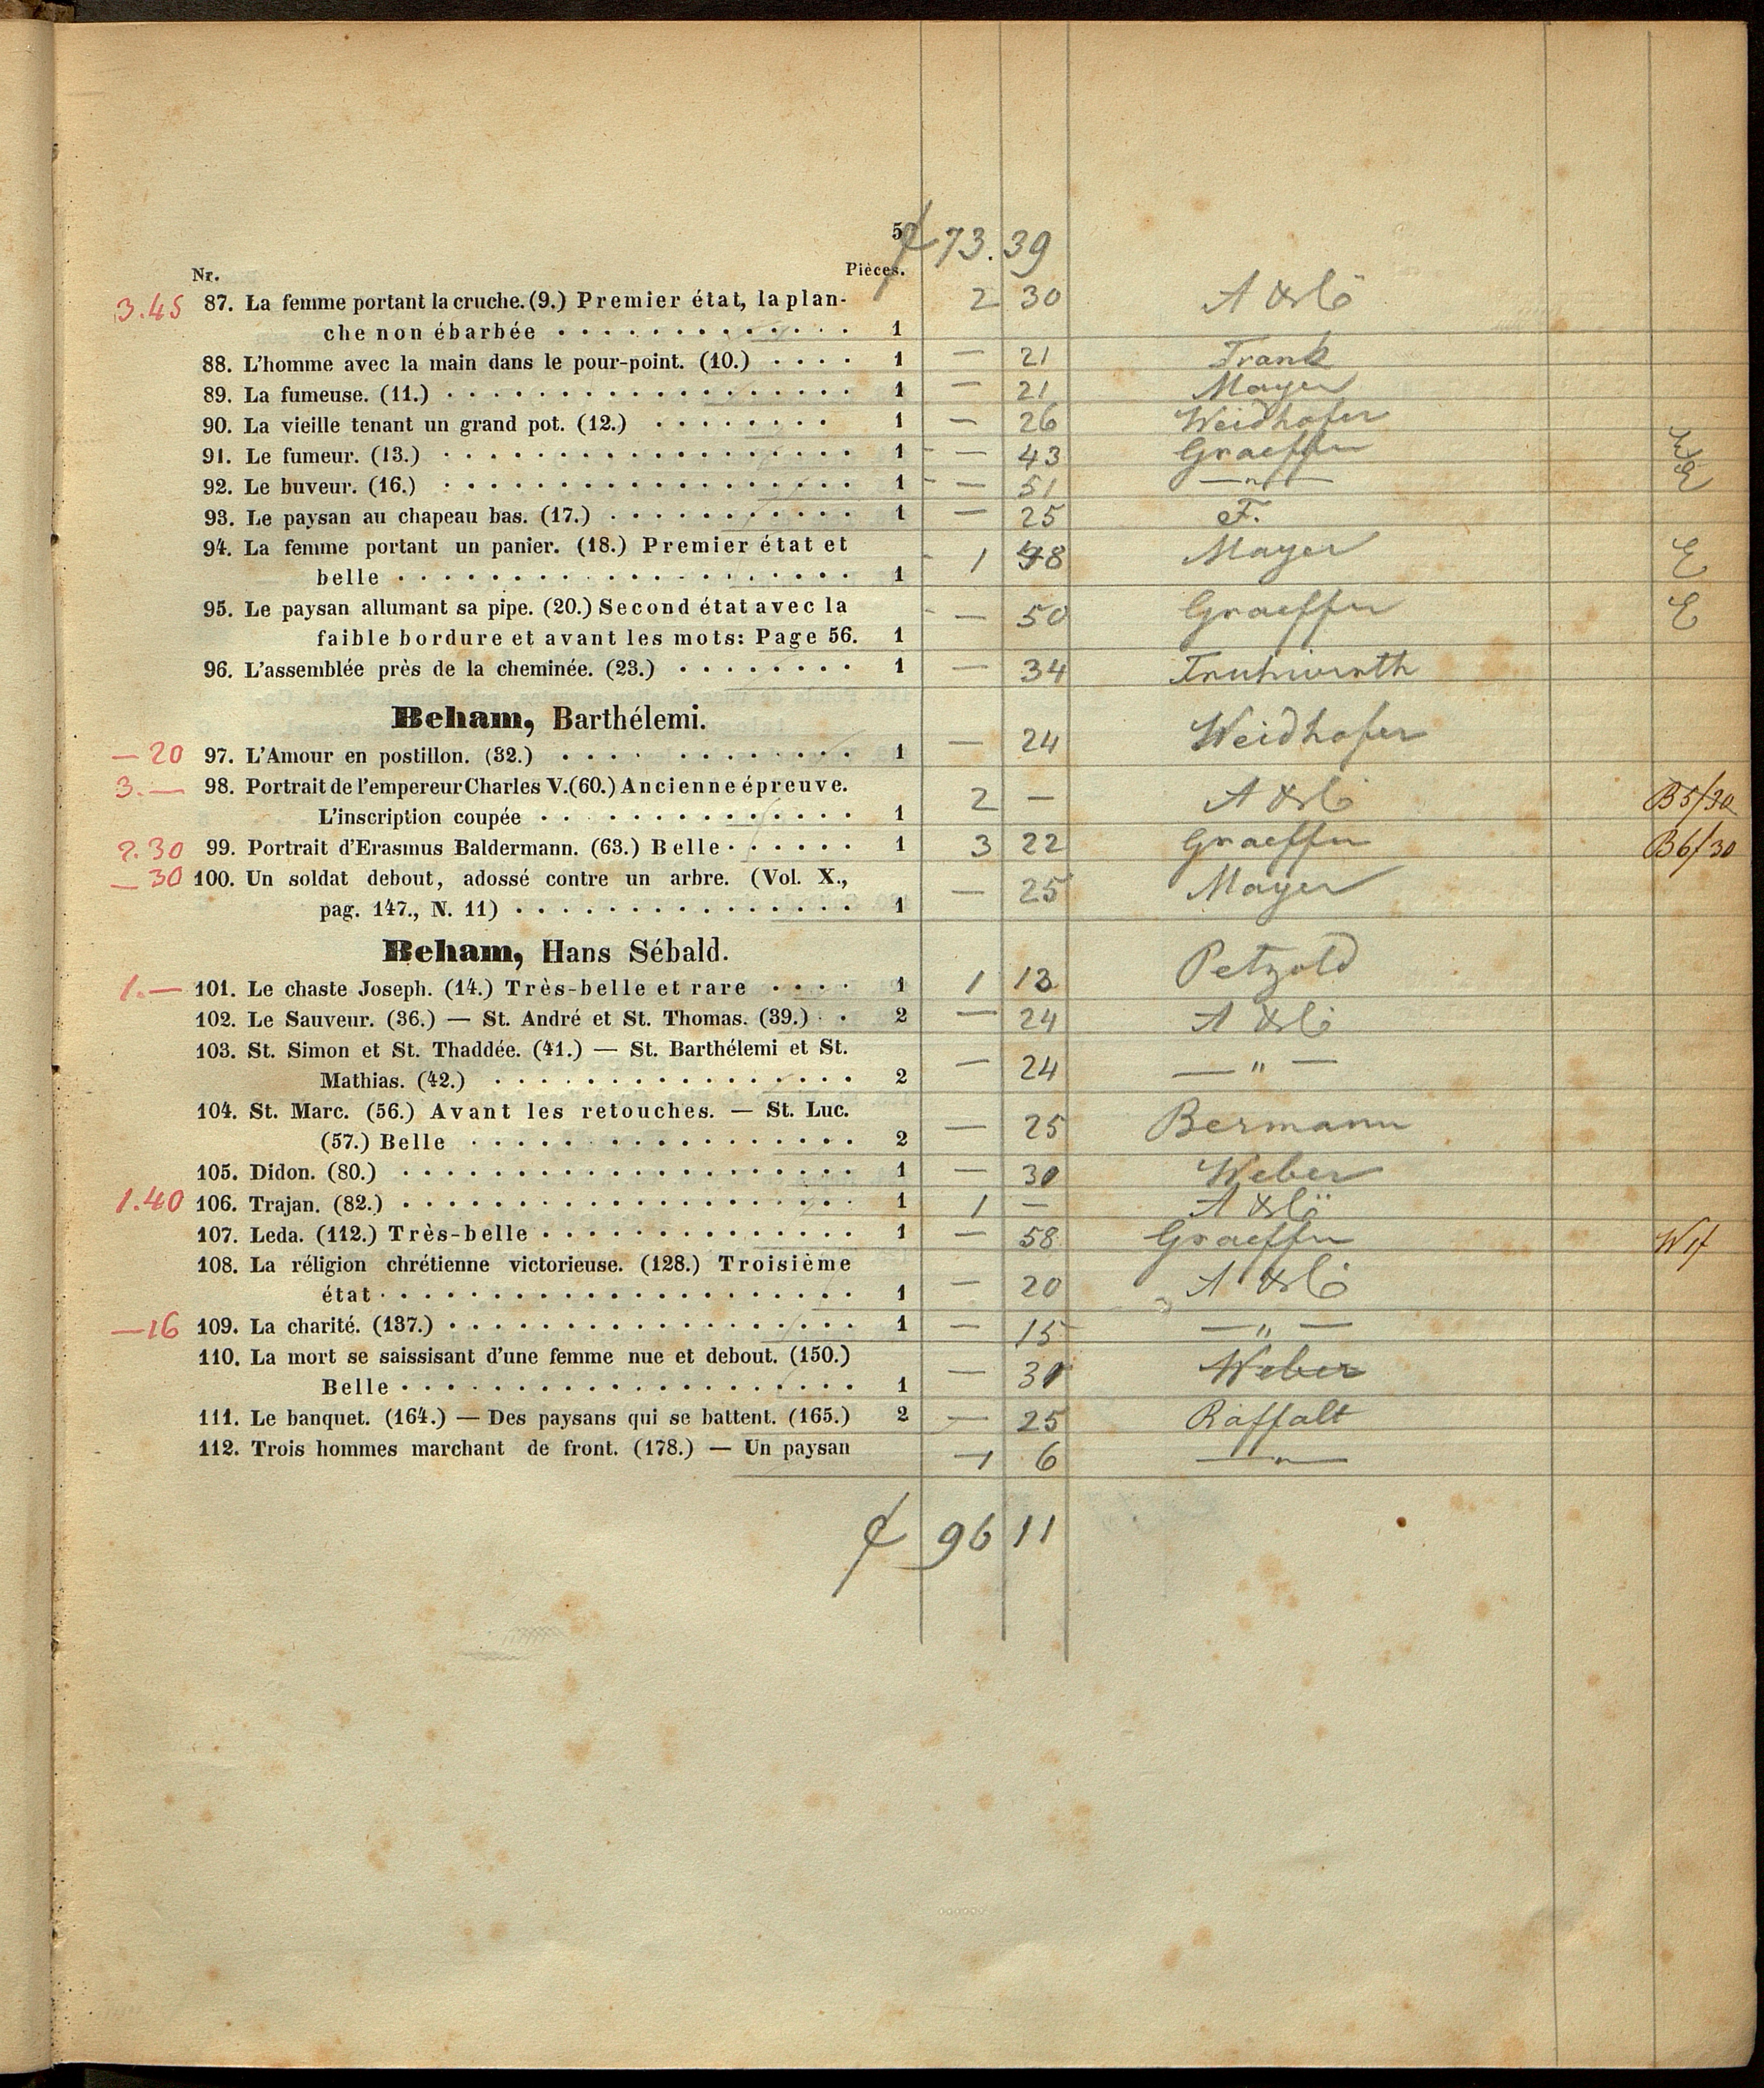 5
73. 39
Nr. Pièces.
3.45 87. La femme portant la cruche. (9.) Premier état, la plan- 2 30
che non ébarbée . . . . . . . . . . . . . 1
88. L'homme avec la main dans le pour-point. (10.) . . . . 1 — 21 Frank
89. La fumeuse. (11.) . . . . . . . . . . . . . . . . . 1 — 21 Mayer
90. La vieille tenant un grand pot. (12.) . . . . . . . . 1 — 26 Weidhofer
91. Le fumeur. (13.) . . . . . . . . . . . . . . . . . 1 — 43 Graeffer E
92. Le buveur. (16.) . . . . . . . . . . . . . . . . . 1 — 51 — " — E
93. Le paysan au chapeau bas. (17.) . . . . . . . . . . . 1 — 25 F.
94. La femme portant un panier. (18.) Premier état et 1 98 Mayer E
belle . . . . . . . . . . . . . . . . . . . 1
95. Le paysan allumant sa pipe. (20.) Second état avec la — 50 Graeffer E
faible bordure et avant les mots: Page 56. 1
96. L'assemblée près de la cheminée. (23.) . . . . . . . . 1 — 34 Fruhwirth
Beham, Barthélemi.
— 20 97. L'Amour en postillon. (32.) . . . . . . . . . . . . 1 — 24 Weidhofer
3.— 98. Portrait de l'empereur Charles V. (60.) Ancienne épreuve. 2 — B 5/30
L'inscription coupée . . . . . . . . . . . . . . 1
2.30 99. Portrait d'Erasmus Baldermann. (63.) Belle . . . . . . 1 3 22 Graeffer B 6/30
— 30 100. Un soldat debout, adossé contre un arbre. (Vol. X., — 25 Mayer
pag. 147., N. 11) . . . . . . . . . . . . . . . 1
Beham, Hans Sébald.
1.— 101. Le chaste Joseph. (14.) Très-belle et rare . . . . 1 1 13 Petzold
102. Le Sauveur. (36.) — St. André et St. Thomas. (39.) . . 2 — 24
103. St. Simon et St. Thaddée. (41.) — St. Barthélemi et St. — 24 — " —
Mathias. (42.) . . . . . . . . . . . . . . . . 2
104. St. Marc. (56.) Avant les retouches. — St. Luc. — 25 Bermann
(57.) Belle . . . . . . . . . . . . . . . . . 2
105. Didon. (80.) . . . . . . . . . . . . . . . . . . . 1 — 30 Weber
1.40 106. Trajan. (82.) . . . . . . . . . . . . . . . . . . . 1 1 —
107. Leda. (112.) Très-belle . . . . . . . . . . . . . . 1 — 58 Graeffer
108. La réligion chrétienne victorieuse. (128.) Troisième — 20
état . . . . . . . . . . . . . . . . . . . . 1
— 16 109. La charité. (137.) . . . . . . . . . . . . . . . . . 1 — 15 — " —
110. La mort se saissisant d'une femme nue et debout. (150.) — Weber
Belle . . . . . . . . . . . . . . . . . . . 1
111. Le banquet. (164.) — Des paysans qui se battent. (165.) 2 — 25 Raffalt
112. Trois hommes marchant de front. (178.) — Un paysan 1 6 — " —
96 11